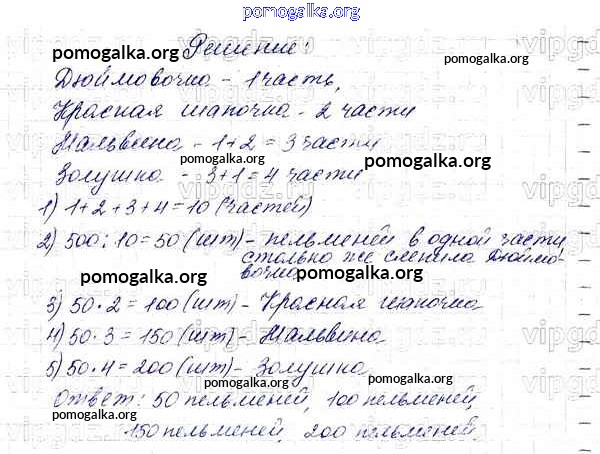 pomogalka.org
Решение:
pomogalka.org
pomogalka.org
Дюймовочка - 1 часть,
pomogalka.org
Красная шапочка - 2 части
Мальвина - 1+2=3 части
pomogalka.org
pomogalka.org
Золушка - 3+1=4 части
1) 1+2+3+4=10 (частей)
pomogalka.org
2) 500:10=50 (шт) - пельменей в одной части
столько же слепила Дюймо-
вочка
pomogalka.org
pomogalka.org
3) 50·2=100 (шт) - Красная шапочка
4) 50·3=150 (шт) - Мальвина
pomogalka.org
5) 50·4=200 (шт) - Золушка
pomogalka.org
pomogalka.org
Ответ: 50 пельменей, 100 пельменей,
pomogalka.org
150 пельменей, 200 пельменей.